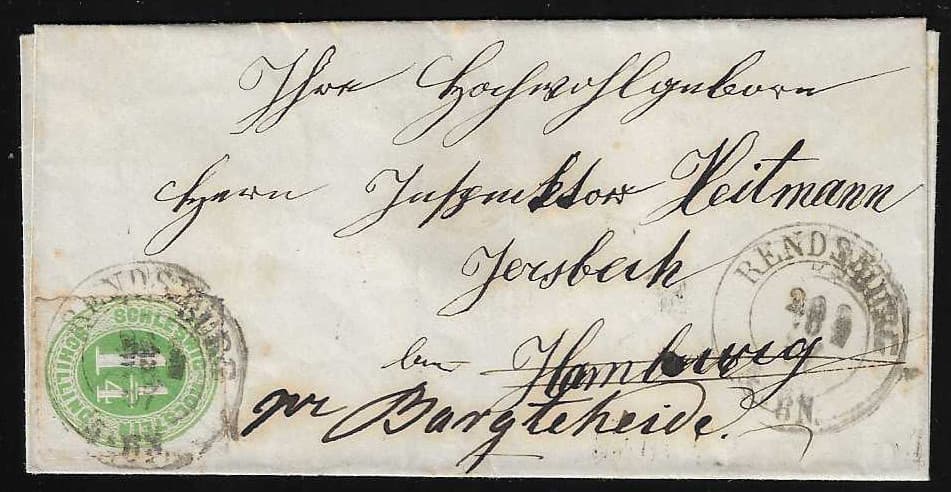 Ihro Hochwohlgeborn
Herrn Inspektor Heitmann
Jersbeck
bei Hamburg
pr Bargteheide.
RENDSBURG
8N.
RENDSBURG
SCHLESWIG-HOLSTEIN
1 1/4